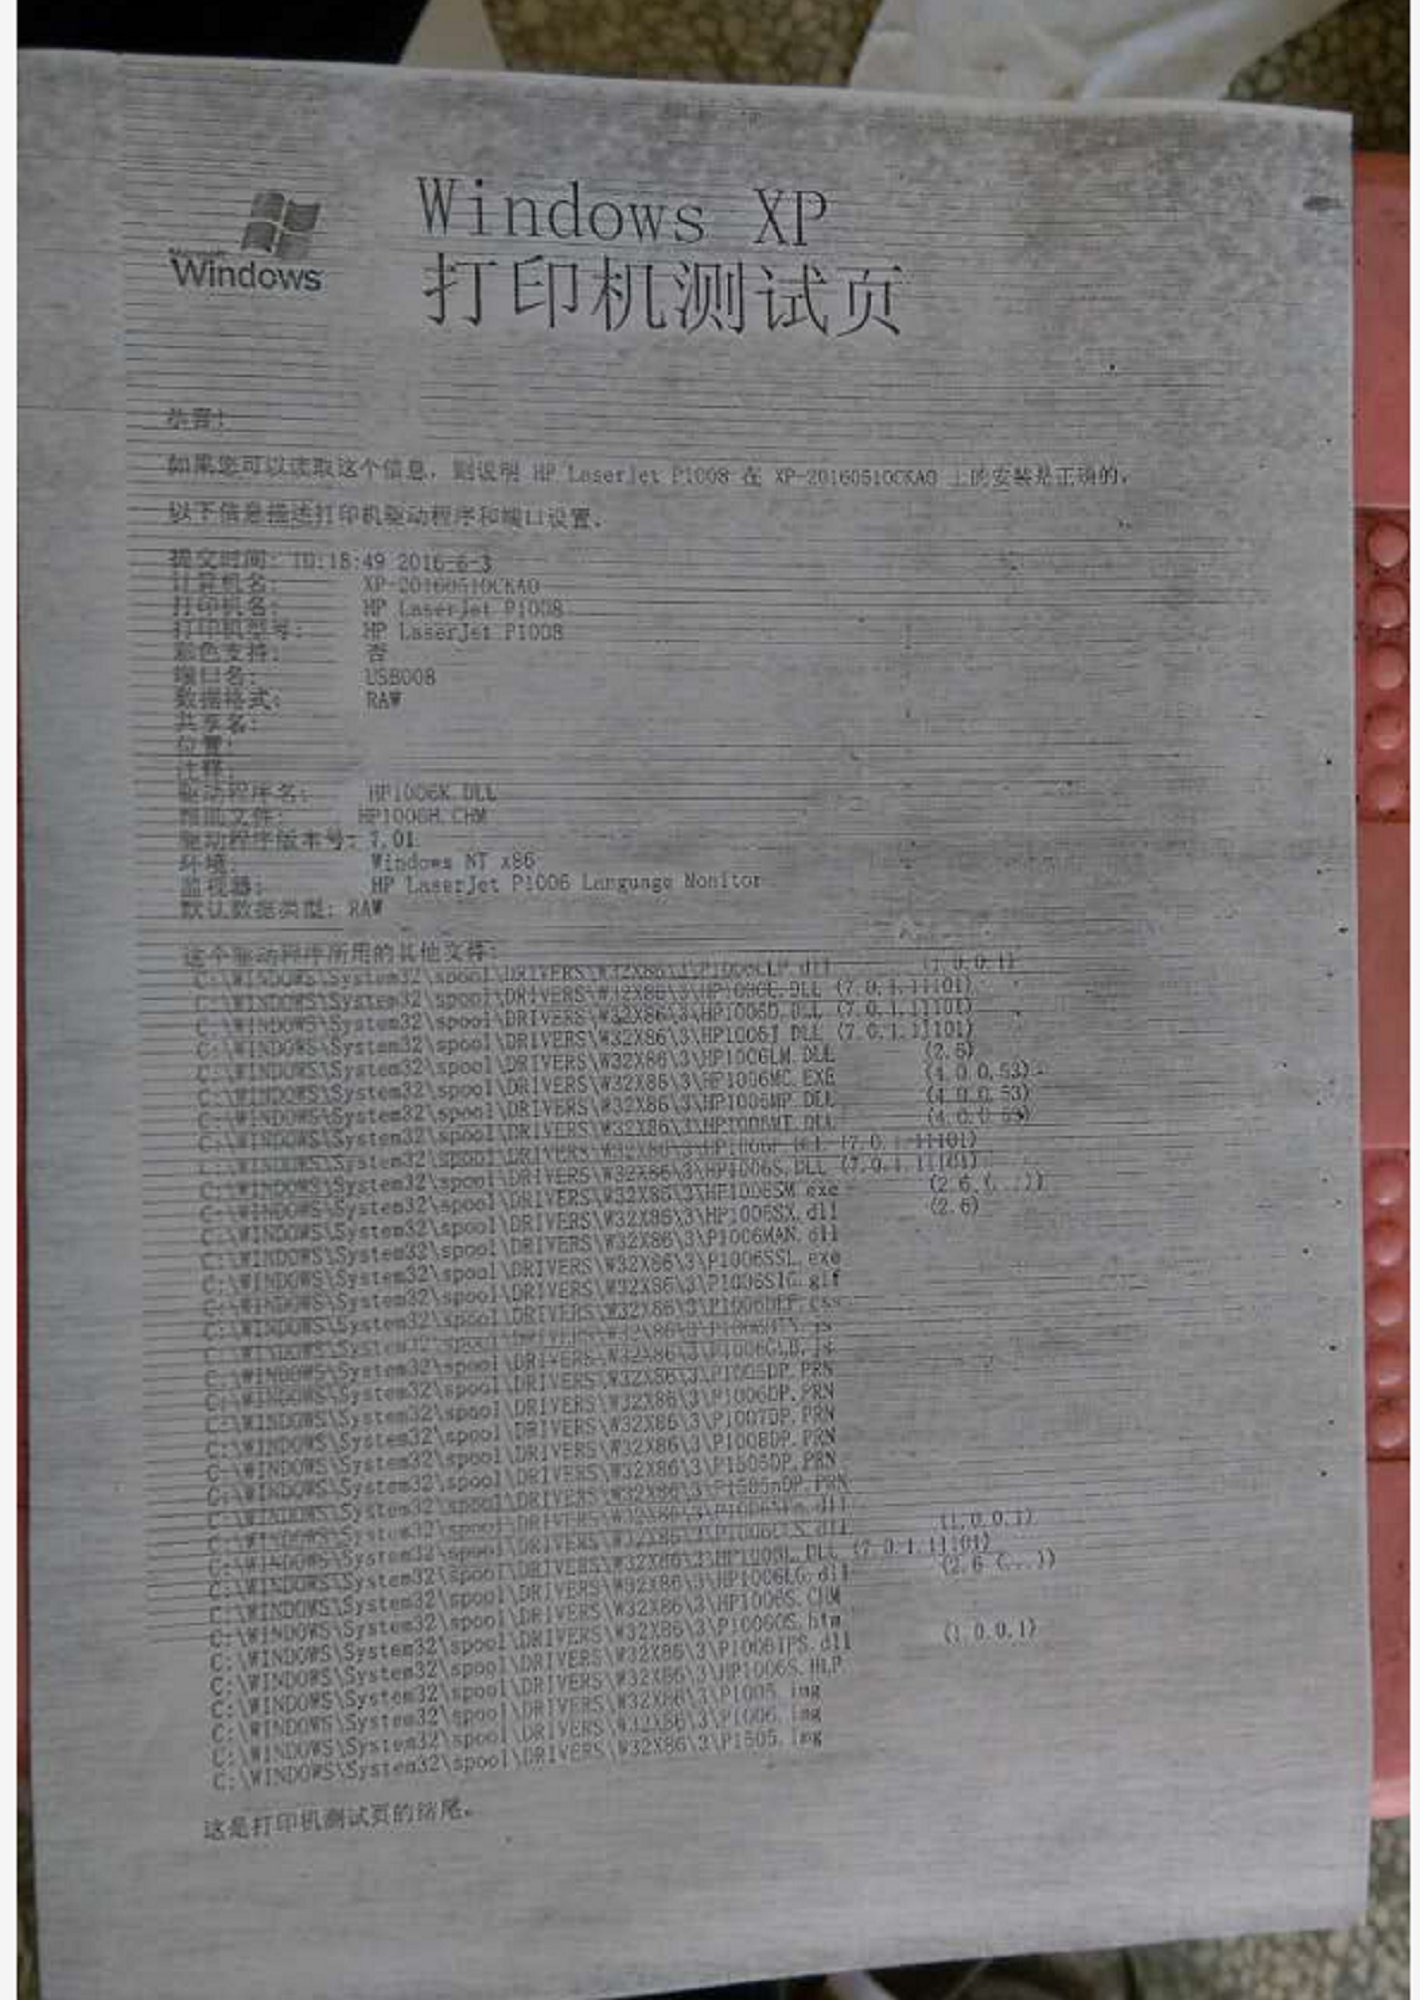 Windows XP
打印机测试页
Windows
恭喜!
如果您可以读取这个信息，则说明 HP LaserJet P1008 在 XP-20160510CKAO 上的安装是正确的。
以下信息描述打印机驱动程序和端口设置。
提交时间: 10:18:49 2016-6-3
计算机名: XP-20160510CKAO
打印机名: HP LaserJet P1008
打印机型号: HP LaserJet P1008
彩色支持: 否
端口名: USB008
数据格式: RAW
共享名:
位置:
注释:
驱动程序名: HP1006K.DLL
帮助文件: HP1006H.CHM
驱动程序版本号: 7.01
环境: Windows NT x86
监视器: HP LaserJet P1006 Language Monitor
默认数据类型: RAW
这个驱动程序所用的其他文件:
C:\WINDOWS\System32\spool\DRIVERS\W32X86\3\ (1.0.0.1)
C:\WINDOWS\System32\spool\DRIVERS\W32X86\3\ (7.0.1.11101)
C:\WINDOWS\System32\spool\DRIVERS\W32X86\3\ (7.0.1.11101)
C:\WINDOWS\System32\spool\DRIVERS\W32X86\3\ (7.0.1.11101)
C:\WINDOWS\System32\spool\DRIVERS\W32X86\3\HP1006LM.DLL (2.6)
C:\WINDOWS\System32\spool\DRIVERS\W32X86\3\HP1006MC.EXE (4.0.0.53)
C:\WINDOWS\System32\spool\DRIVERS\W32X86\3\HP1006MP.DLL (4.0.0.53)
C:\WINDOWS\System32\spool\DRIVERS\W32X86\3\HP1006MT.DLL (4.0.0.53)
C:\WINDOWS\System32\spool\DRIVERS\W32X86\3\ (7.0.1.11101)
C:\WINDOWS\System32\spool\DRIVERS\W32X86\3\HP1006S.DLL (7.0.1.11101)
C:\WINDOWS\System32\spool\DRIVERS\W32X86\3\HP1006SM.exe (2.6.(...))
C:\WINDOWS\System32\spool\DRIVERS\W32X86\3\HP1006SX.dll (2.6)
C:\WINDOWS\System32\spool\DRIVERS\W32X86\3\P1006MAN.dll
C:\WINDOWS\System32\spool\DRIVERS\W32X86\3\P1006SSL.exe
C:\WINDOWS\System32\spool\DRIVERS\W32X86\3\P1006SIG.gif
C:\WINDOWS\System32\spool\DRIVERS\W32X86\3\P1006DEF.css
C:\WINDOWS\System32\spool\DRIVERS\W32X86\3\
C:\WINDOWS\System32\spool\DRIVERS\W32X86\3\P1006GLB.js
C:\WINDOWS\System32\spool\DRIVERS\W32X86\3\P1005DP.PRN
C:\WINDOWS\System32\spool\DRIVERS\W32X86\3\P1006DP.PRN
C:\WINDOWS\System32\spool\DRIVERS\W32X86\3\P1007DP.PRN
C:\WINDOWS\System32\spool\DRIVERS\W32X86\3\P1008DP.PRN
C:\WINDOWS\System32\spool\DRIVERS\W32X86\3\P1505DP.PRN
C:\WINDOWS\System32\spool\DRIVERS\W32X86\3\P1505nDP.PRN
C:\WINDOWS\System32\spool\DRIVERS\W32X86\3\
C:\WINDOWS\System32\spool\DRIVERS\W32X86\3\ (1.0.0.1)
C:\WINDOWS\System32\spool\DRIVERS\W32X86\3\ (7.0.1.11101)
C:\WINDOWS\System32\spool\DRIVERS\W32X86\3\HP1006LG.dll (2.6 (...))
C:\WINDOWS\System32\spool\DRIVERS\W32X86\3\HP1006S.CHM
C:\WINDOWS\System32\spool\DRIVERS\W32X86\3\P1006OS.htm
C:\WINDOWS\System32\spool\DRIVERS\W32X86\3\P1006IPS.dll (1.0.0.1)
C:\WINDOWS\System32\spool\DRIVERS\W32X86\3\HP1006S.HLP
C:\WINDOWS\System32\spool\DRIVERS\W32X86\3\P1005.img
C:\WINDOWS\System32\spool\DRIVERS\W32X86\3\P1006.img
C:\WINDOWS\System32\spool\DRIVERS\W32X86\3\P1505.img
这是打印机测试页的结尾。